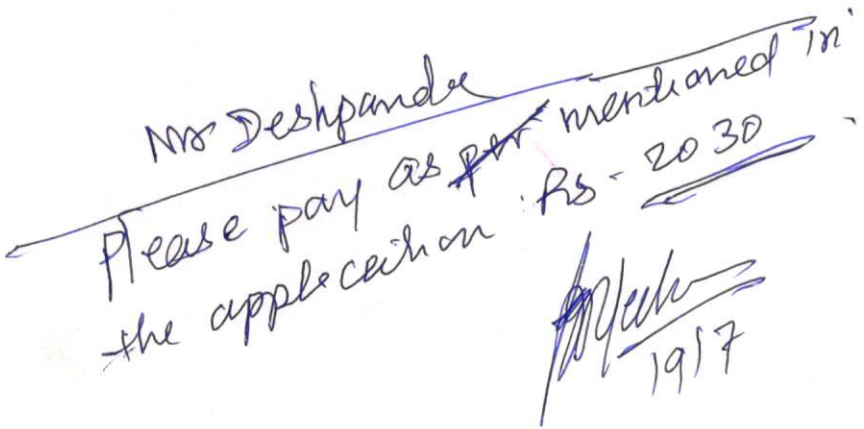 Mr Deshpande
Please pay as mentioned in
the application Rs. 2030
19/7